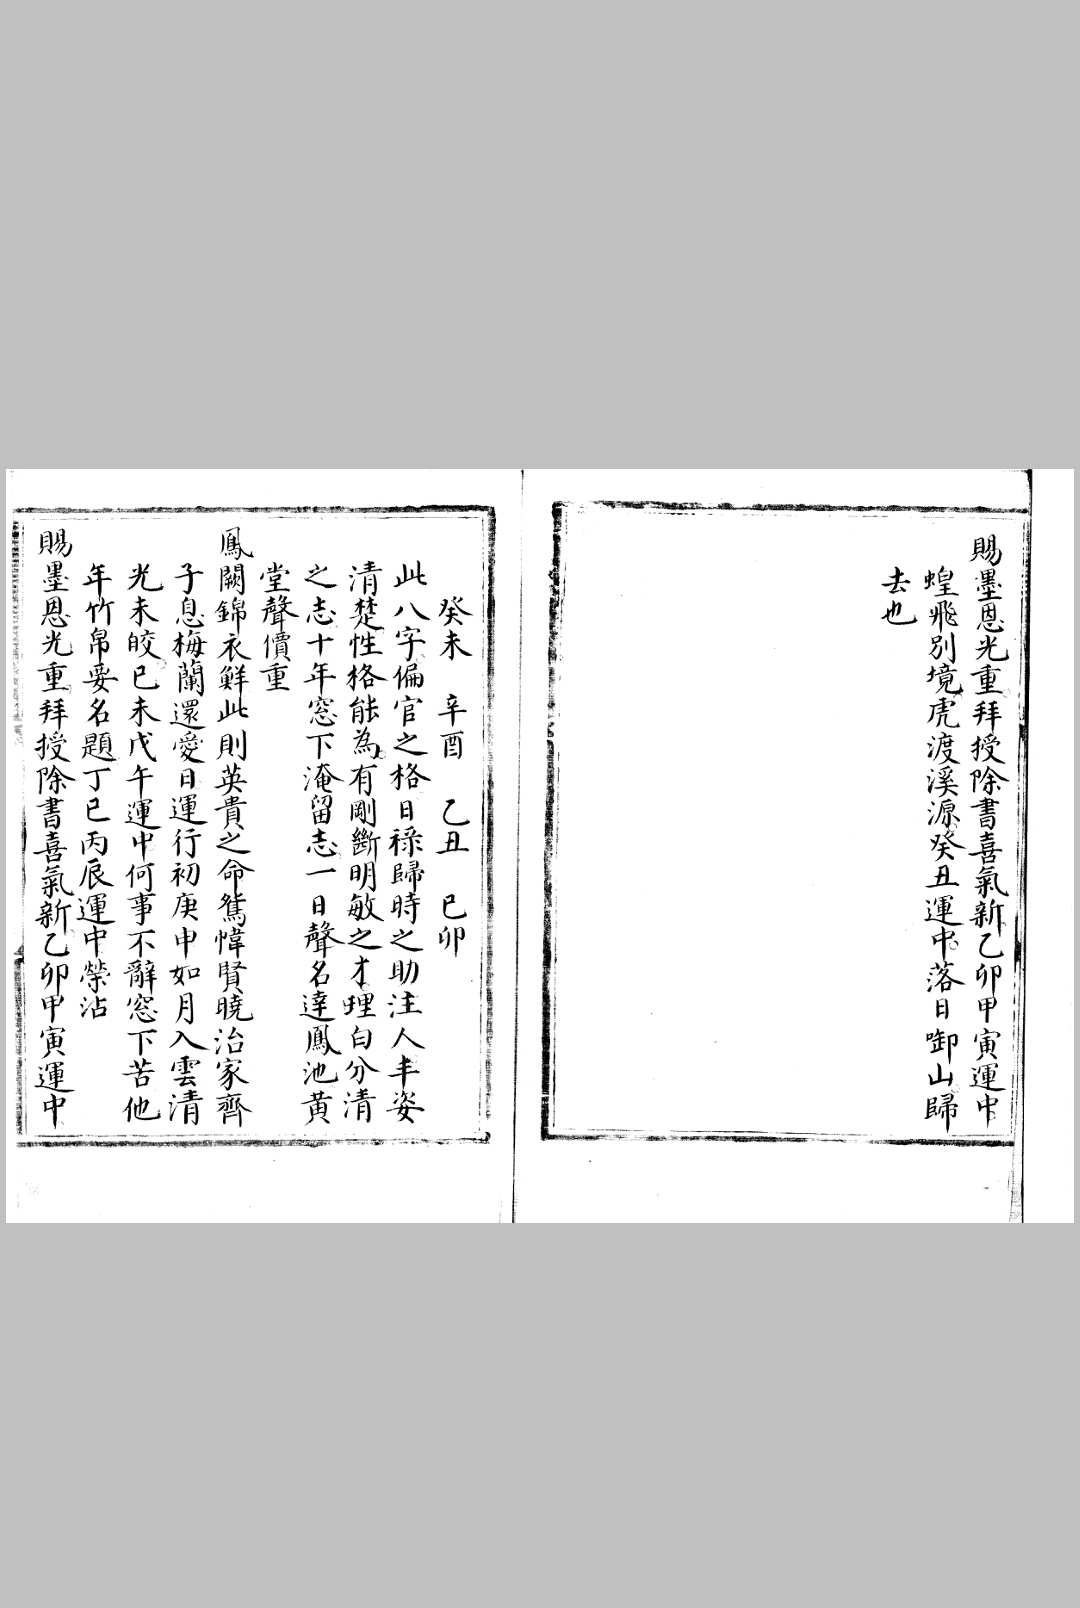 賜墨恩光重拜授除書喜氣新乙卯甲寅運中
蝗飛別境虎渡溪源癸丑運中落日啣山歸
去也
癸未　辛酉　乙丑　已卯
此八字偏官之格日祿歸時之助注人丰姿
清楚性格能為有剛斷明敏之才理白分清
之志十年窓下淹留志一日聲名達鳳池黃
堂聲價重
鳳闕錦衣鮮此則英貴之命鴛幃賢曉治家齊
子息梅蘭還愛日運行初庚申如月入雲清
光未皎已未戊午運中何事不辭窓下苦他
年竹帛要名題丁巳丙辰運中榮沾
賜墨恩光重拜授除書喜氣新乙卯甲寅運中